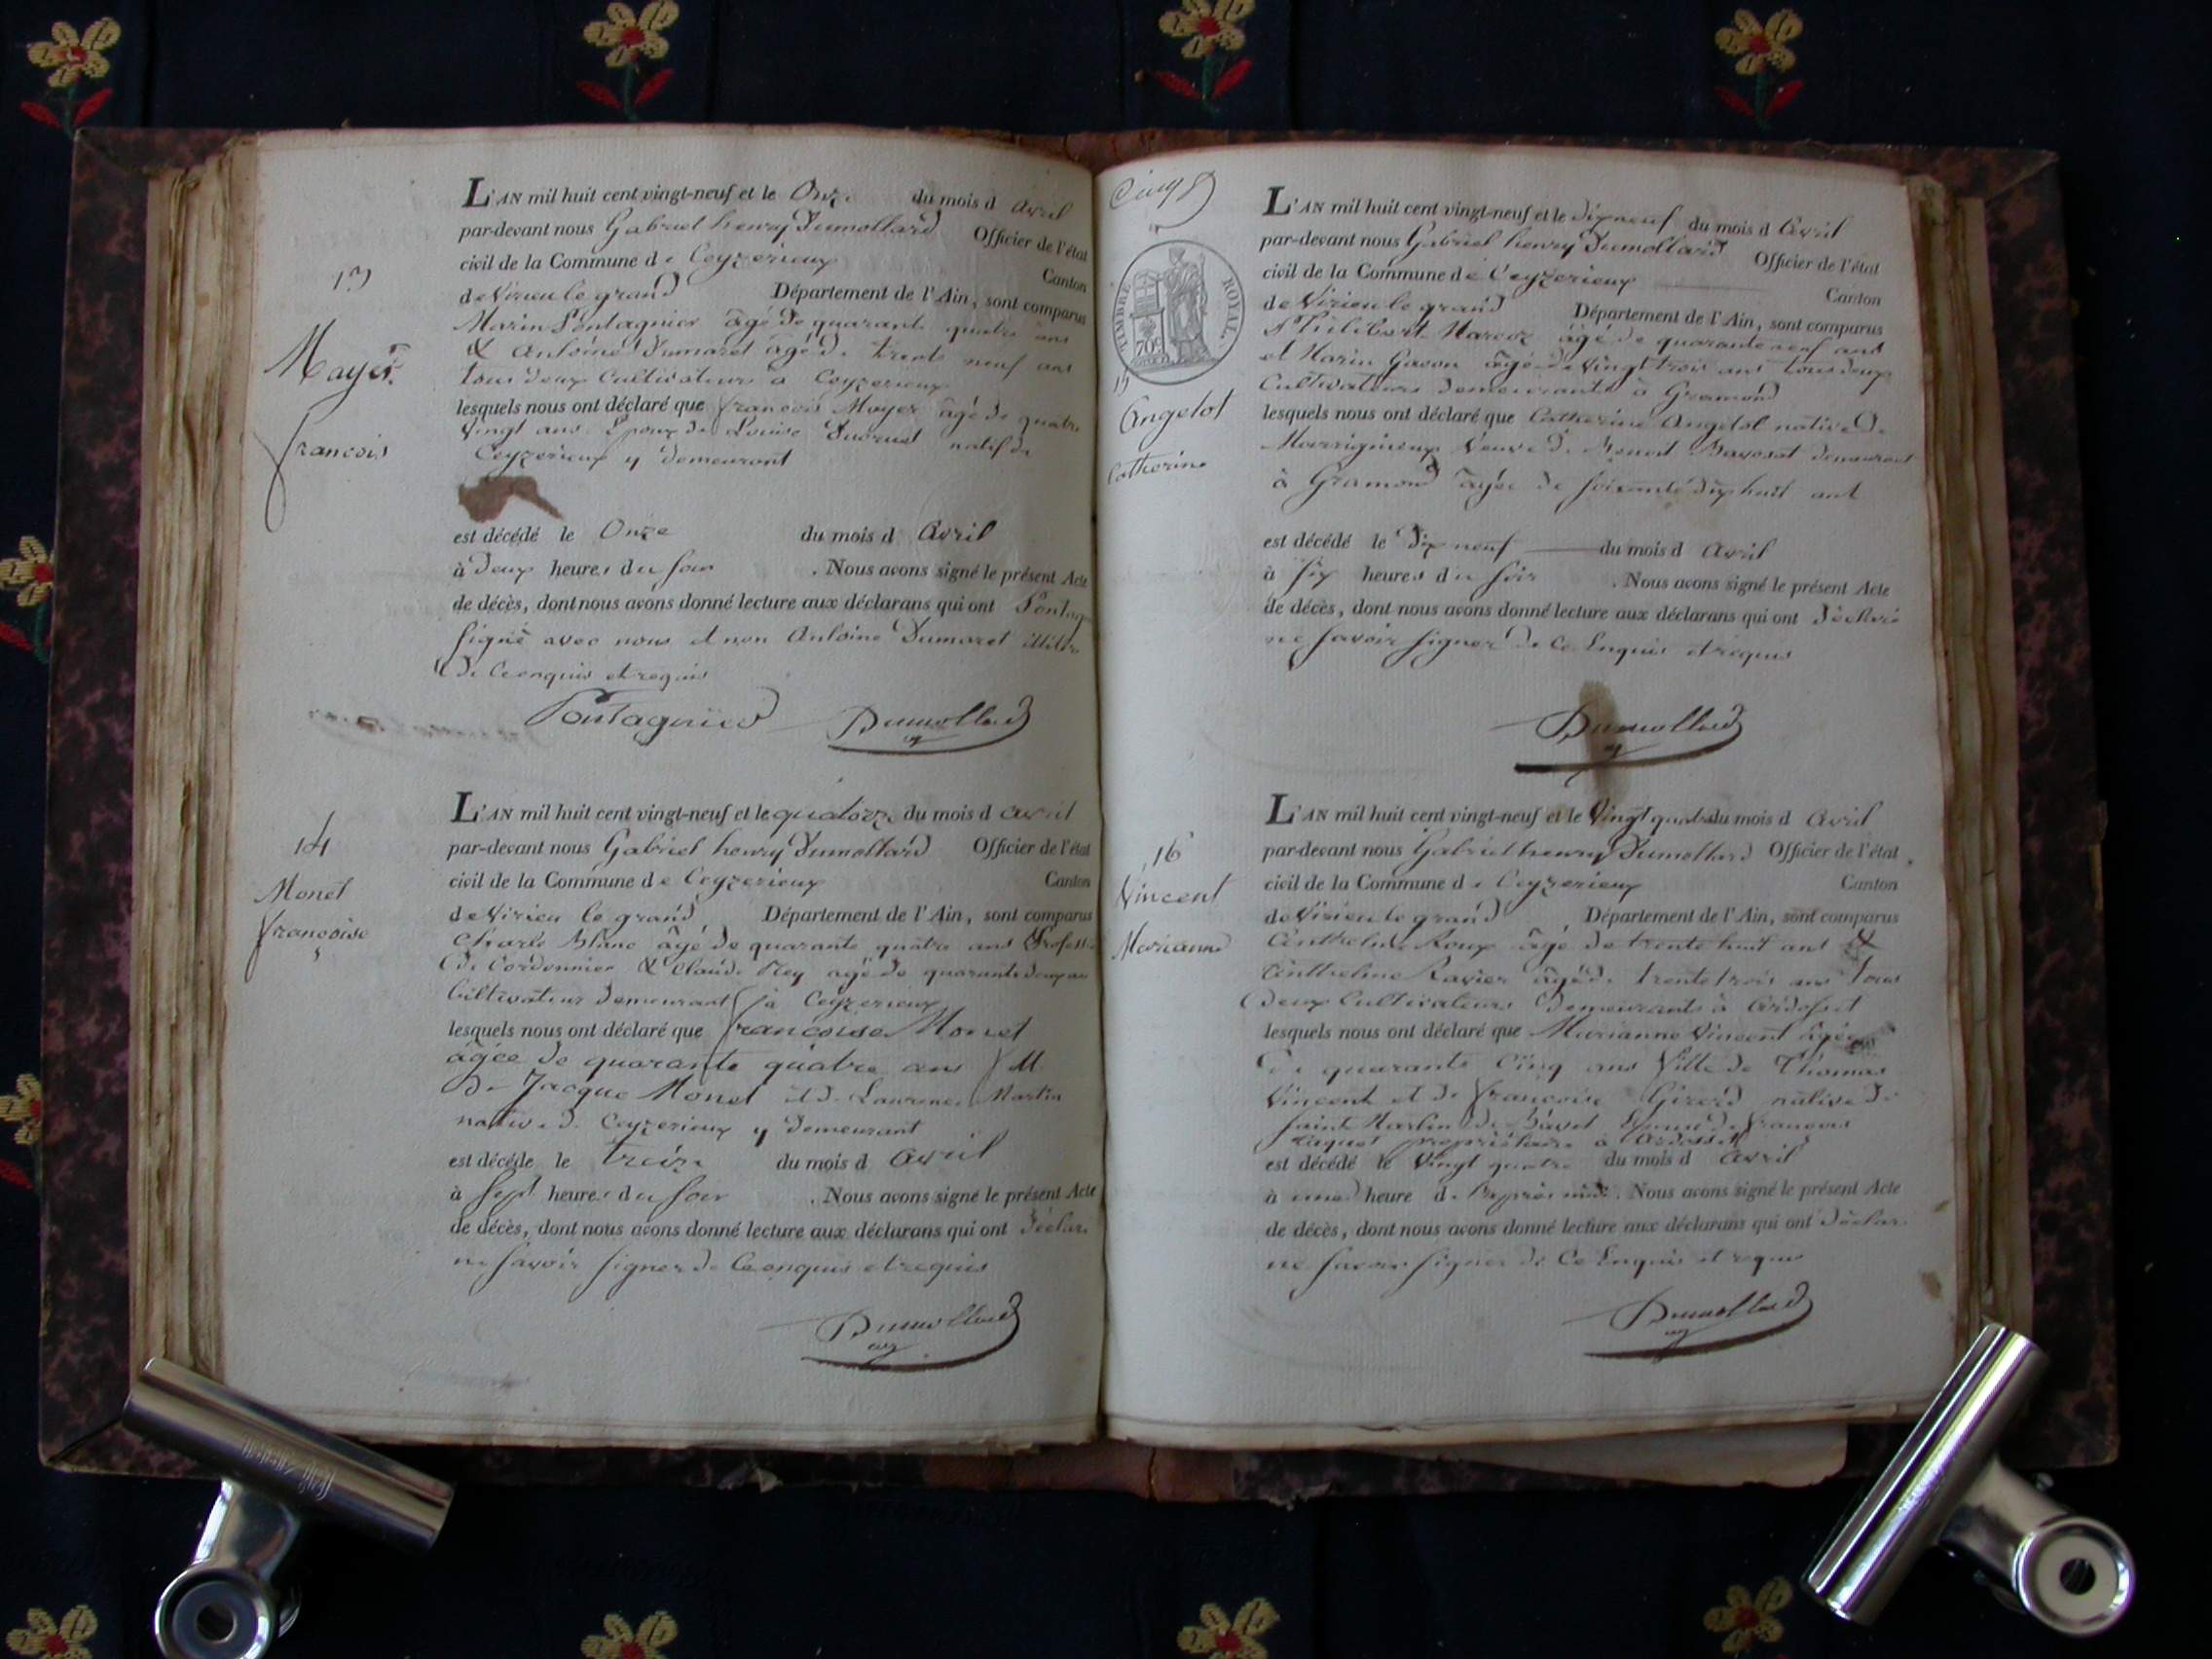 13
Mayer
francois
L'AN mil huit cent vingt-neuf et le Onze du mois d avril
par-devant nous Gabriel henry Dumollard Officier de l'état
civil de la Commune de Ceyzerieux Canton
de Virieu le grand Département de l'Ain, sont comparus
Marin Pontagnier âgé de quarante quatre ans
& Antoine Dumaret âgé de trente neuf ans
tous deux Cultivateurs a Ceyzerieux
lesquels nous ont déclaré que francois Mayer âgé de quatre
vingt ans Epoux de Louise natif de
Ceyzerieux y demeurant
est décédé le Onze du mois d Avril
à deux heures du soir . Nous avons signé le présent Acte
de décès, dont nous avons donné lecture aux déclarans qui ont Pontag
signé avec nous et non Antoine Dumaret
de ce enquis et requis
Pontagnier Dumollard
14
Monet
francoise
L'AN mil huit cent vingt-neuf et le quatorze du mois d avril
par-devant nous Gabriel henry Dumollard Officier de l'état
civil de la Commune de Ceyzerieux Canton
de Virieu le grand Département de l'Ain, sont comparus
Charle Blanc âgé de quarante quatre ans
de Cordonnier & Claude Rey âgé de quarante deux an
Cultivateur demeurant à Ceyzerieux
lesquels nous ont déclaré que francoise Monet
âgée de quarante quatre ans
de Jacque Monet et de Laurence Martin
native de Ceyzerieux y demeurant
est décédé le treize du mois d Avril
à Sept heures du soir . Nous avons signé le présent Acte
de décès, dont nous avons donné lecture aux déclarans qui ont déclaré
ne savoir signer de ce enquis et requis
Dumollard
Cinq
TIMBRE ROYAL
70c
15
Angelot
Catherine
L'AN mil huit cent vingt-neuf et le dix neuf du mois d Avril
par-devant nous Gabriel henry Dumollard Officier de l'état
civil de la Commune de Ceyzerieux Canton
de Virieu le grand Département de l'Ain, sont comparus
Philibert Marcoz âgé de quarante neuf ans
et Marin Gavon âgé de vingt trois ans tous deux
Cultivateurs demeurants à Gramond
lesquels nous ont déclaré que Catherine Angelot native de
Marrignieux Veuve de Benoit demeurant
à Gramond âgée de soixante dix huit ans
est décédé le dix neuf du mois d avril
à six heures du soir . Nous avons signé le présent Acte
de décès, dont nous avons donné lecture aux déclarans qui ont déclaré
ne savoir signer de ce Enquis et requis
Dumollard
16
Vincent
Marianne
L'AN mil huit cent vingt-neuf et le Vingt quatre du mois d Avril
par-devant nous Gabriel henry Dumollard Officier de l'état
civil de la Commune de Ceyzerieux Canton
de Virieu le grand Département de l'Ain, sont comparus
Anthelme Roux âgé de trente huit ans &
Anthelme Ravier âgé de trente trois ans tous
deux Cultivateurs demeurants à Ardosset
lesquels nous ont déclaré que Marianne Vincent âgée
de quarante Cinq ans fille de Thomas
Vincent et de francoise Girerd native de
saint Martin de Bavel Epouse de francois
propriétaire a Ardosset
est décédé le Vingt quatre du mois d avril
à une heure d . Nous avons signé le présent Acte
de décès, dont nous avons donné lecture aux déclarans qui ont déclar
ne savoir signer de ce Enquis et requis
Dumollard